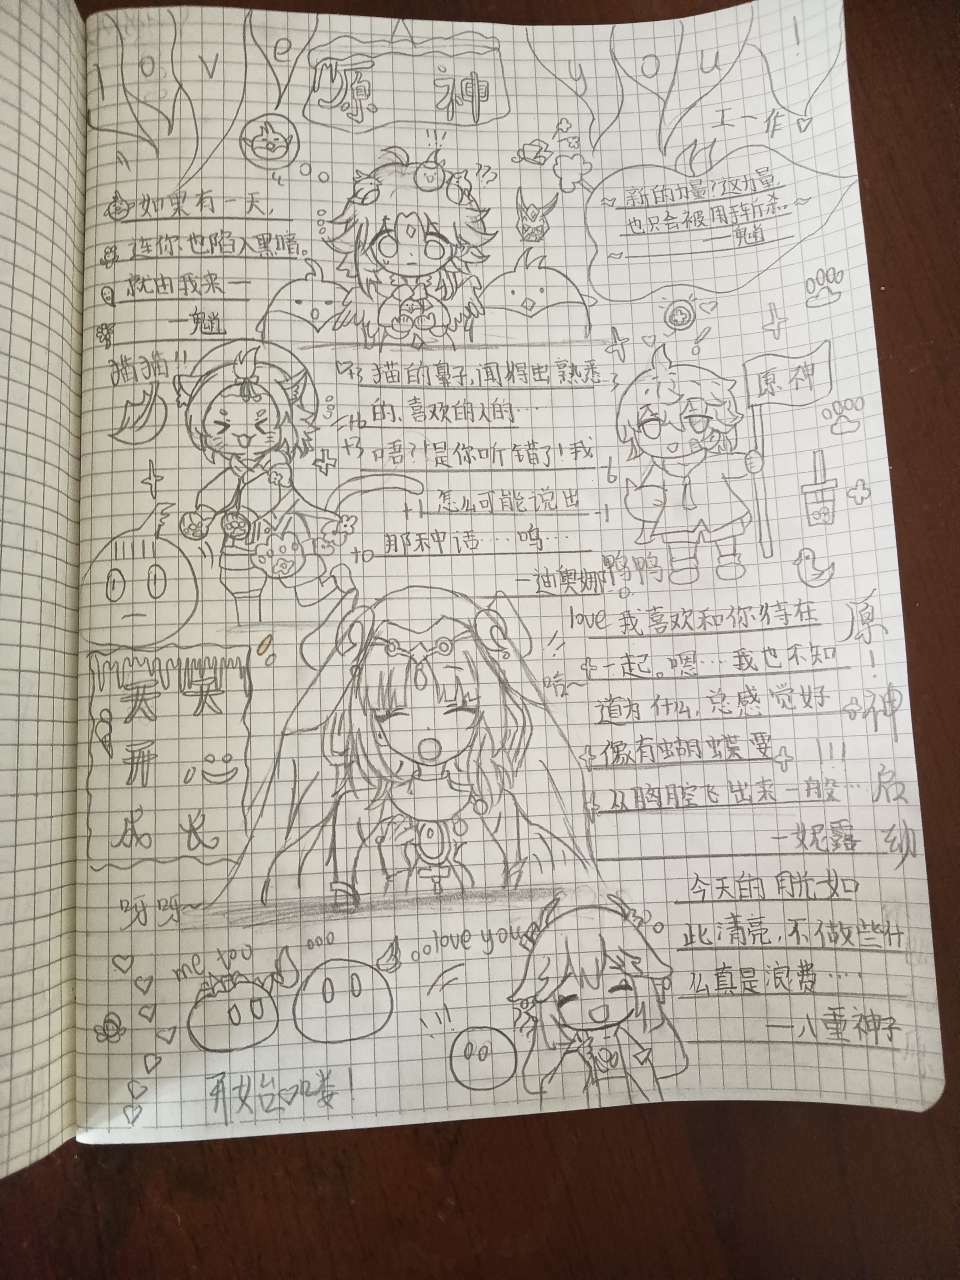 love
原神
you!
工一作
如果有一天,
连你也陷入黑暗。
就由我来一
一魈
新的力量?这力量
也只会被用于斩杀。
一魈
猫猫!!
猫的鼻子,闻得出熟悉
的、喜欢的人的…
唔?!是你听错了!我
怎么可能说出
那种话……呜…
一迪奥娜
原神
鸭鸭
love 我喜欢和你待在
一起。嗯…我也不知
道为什么,总感觉好
像有蝴蝶要
从胸腔飞出来一般…
一妮露
原!
神
!!!
启
动
哈~
天天
开心
成长
呀呀~
今天的月光如
此清亮,不做些什
么真是浪费……
一八重神子
me too
love you
开始喽!